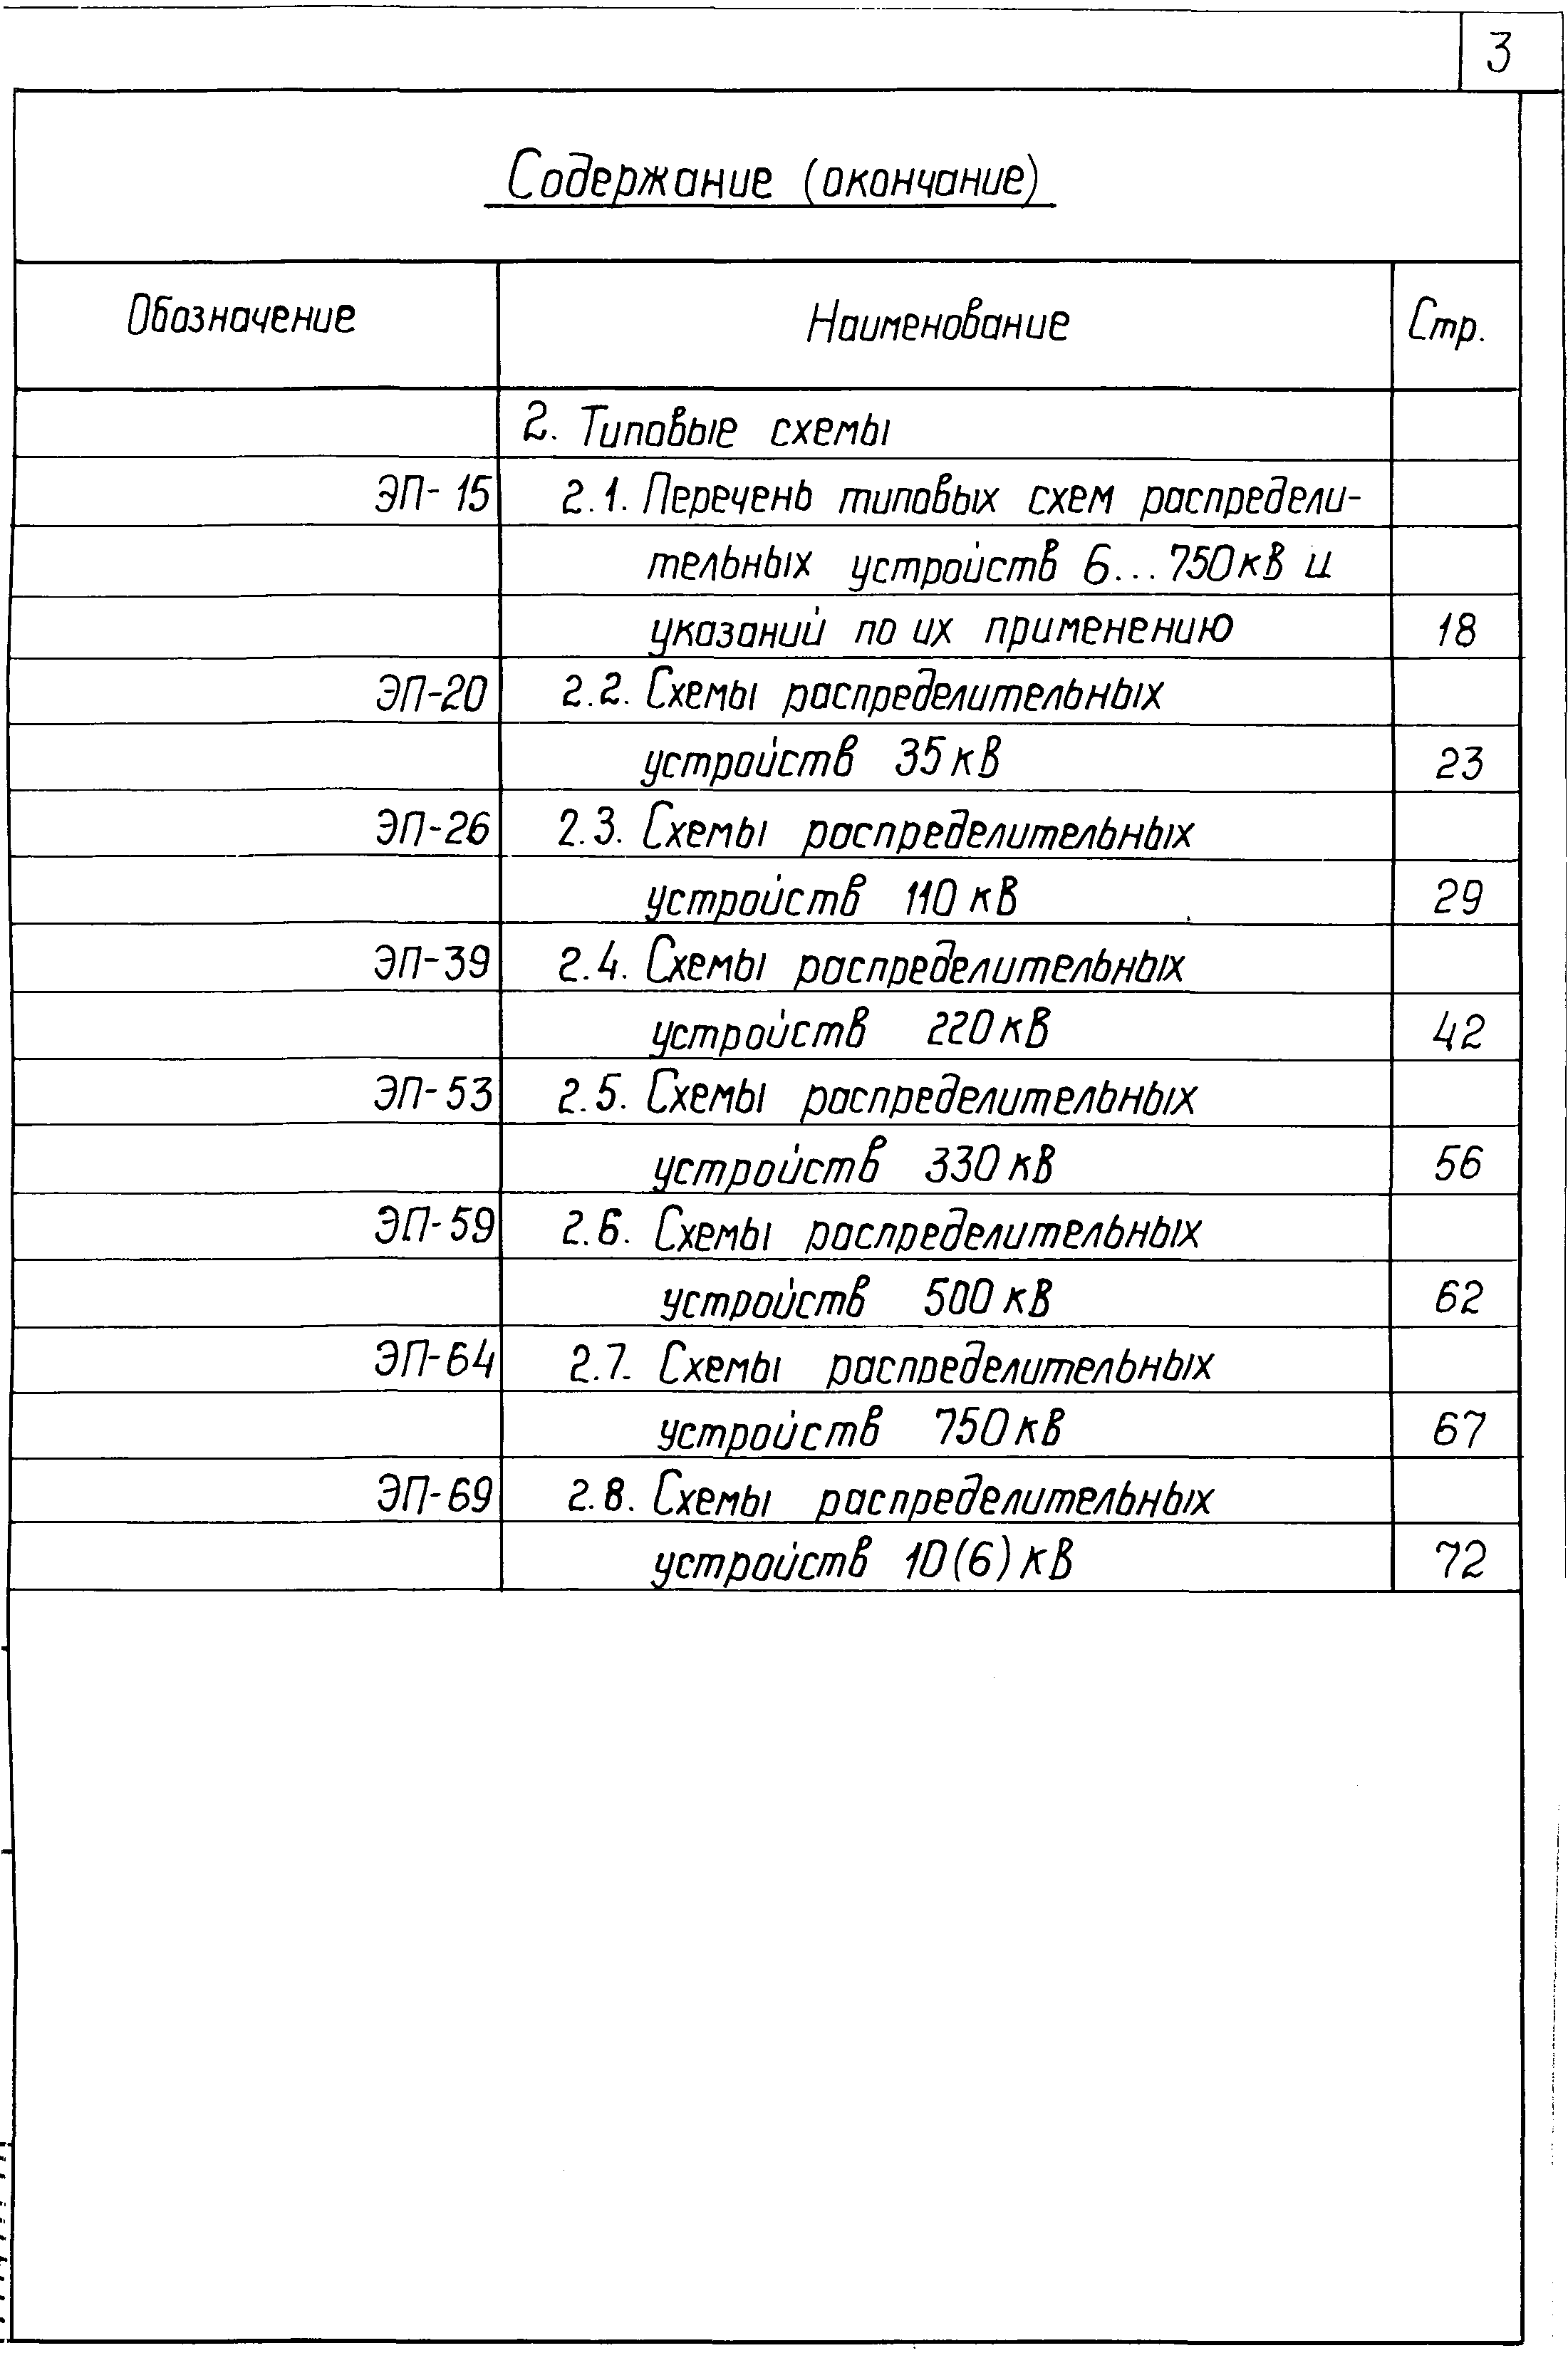 3
Содержание (окончание)
Обозначение Наименование Стр.
2. Типовые схемы
ЭП-15 2.1. Перечень типовых схем распредели-
тельных устройств 6...750кВ и
указаний по их применению 18
ЭП-20 2.2. Схемы распределительных
устройств 35кВ 23
ЭП-26 2.3. Схемы распределительных
устройств 110 кВ 29
ЭП-39 2.4. Схемы распределительных
устройств 220кВ 42
ЭП-53 2.5. Схемы распределительных
устройств 330кВ 56
ЭП-59 2.6. Схемы распределительных
устройств 500кВ 62
ЭП-64 2.7. Схемы распределительных
устройств 750кВ 67
ЭП-69 2.8. Схемы распределительных
устройств 10(6)кВ 72